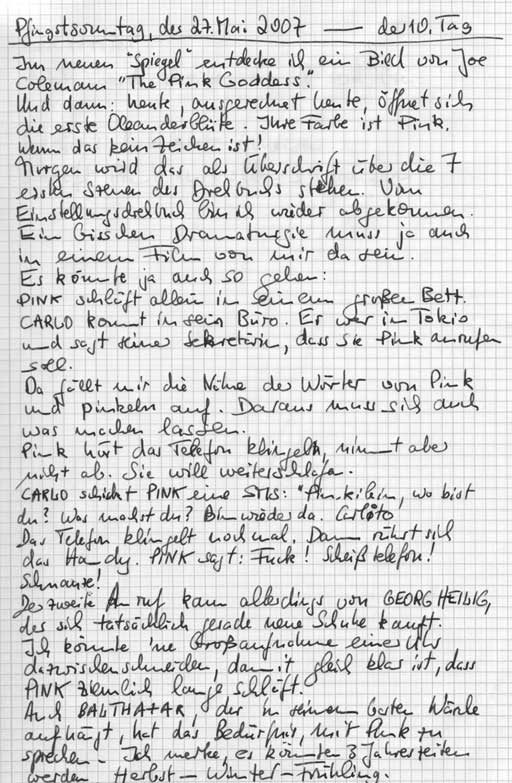 Pfingstsonntag, des 27. Mai 2007 — der 10. Tag
Im neuen "Spiegel" entdecke ich ein Bild von Joe
Colemann "The Pink Goddess".
Und dann: heute, ausgerechnet heute, öffnet sich
die erste Oleanderblüte. Ihre Farbe ist Pink.
Wenn das kein Zeichen ist!
Morgen wird das als Überschrift über die 7
ersten Szenen des Drehbuchs stehen. Vom
Einstellungsdrehbuch bin ich wieder abgekommen.
Ein bisschen Dramaturgie muss ja auch
in einem Film von mir da sein.
Es könnte ja auch so gehen:
PINK schläft allein in einem großen Bett.
CARLO kommt in sein Büro. Er war in Tokio
und sagt seiner Sekretärin, dass sie Pink anrufen
soll.
Da fällt mir die Nähe der Wörter von Pink
und pinkeln auf. Daraus muss sich auch
was machen lassen.
Pink hört das Telefon klingeln, nimmt aber
nicht ab. Sie will weiterschlafen.
CARLO schickt PINK eine SMS: "Pinkilein, wo bist
du? Was machst du? Bin wieder da. Carlito
Das Telefon klingelt noch mal. Dann rührt sich
das Handy. PINK sagt: Fuck! Scheißtelefon!
Schnauze!
Der zweite Anruf kam allerdings von GEORG HEILIG,
der sich tatsächlich gerade neue Schuhe kauft.
Ich könnte 'ne Großaufnahme einer Uhr
dazwischenschneiden, damit gleich klar ist, dass
PINK ziemlich lange schläft.
Auch BALTHAZAR, der in seinem Garten Wäsche
aufhängt, hat das Bedürfnis, mit Pink zu
sprechen. Ich merke, es könnten 3 Jahreszeiten
werden Herbst – Winter – Frühling.